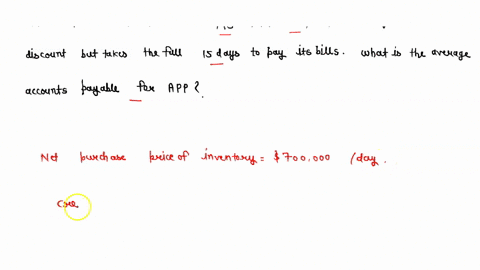 discount but takes the full 15 days to pay its bills. what is the average
accounts payable for APP?
Net purchase price of inventory = $700,000 /day.
Cre